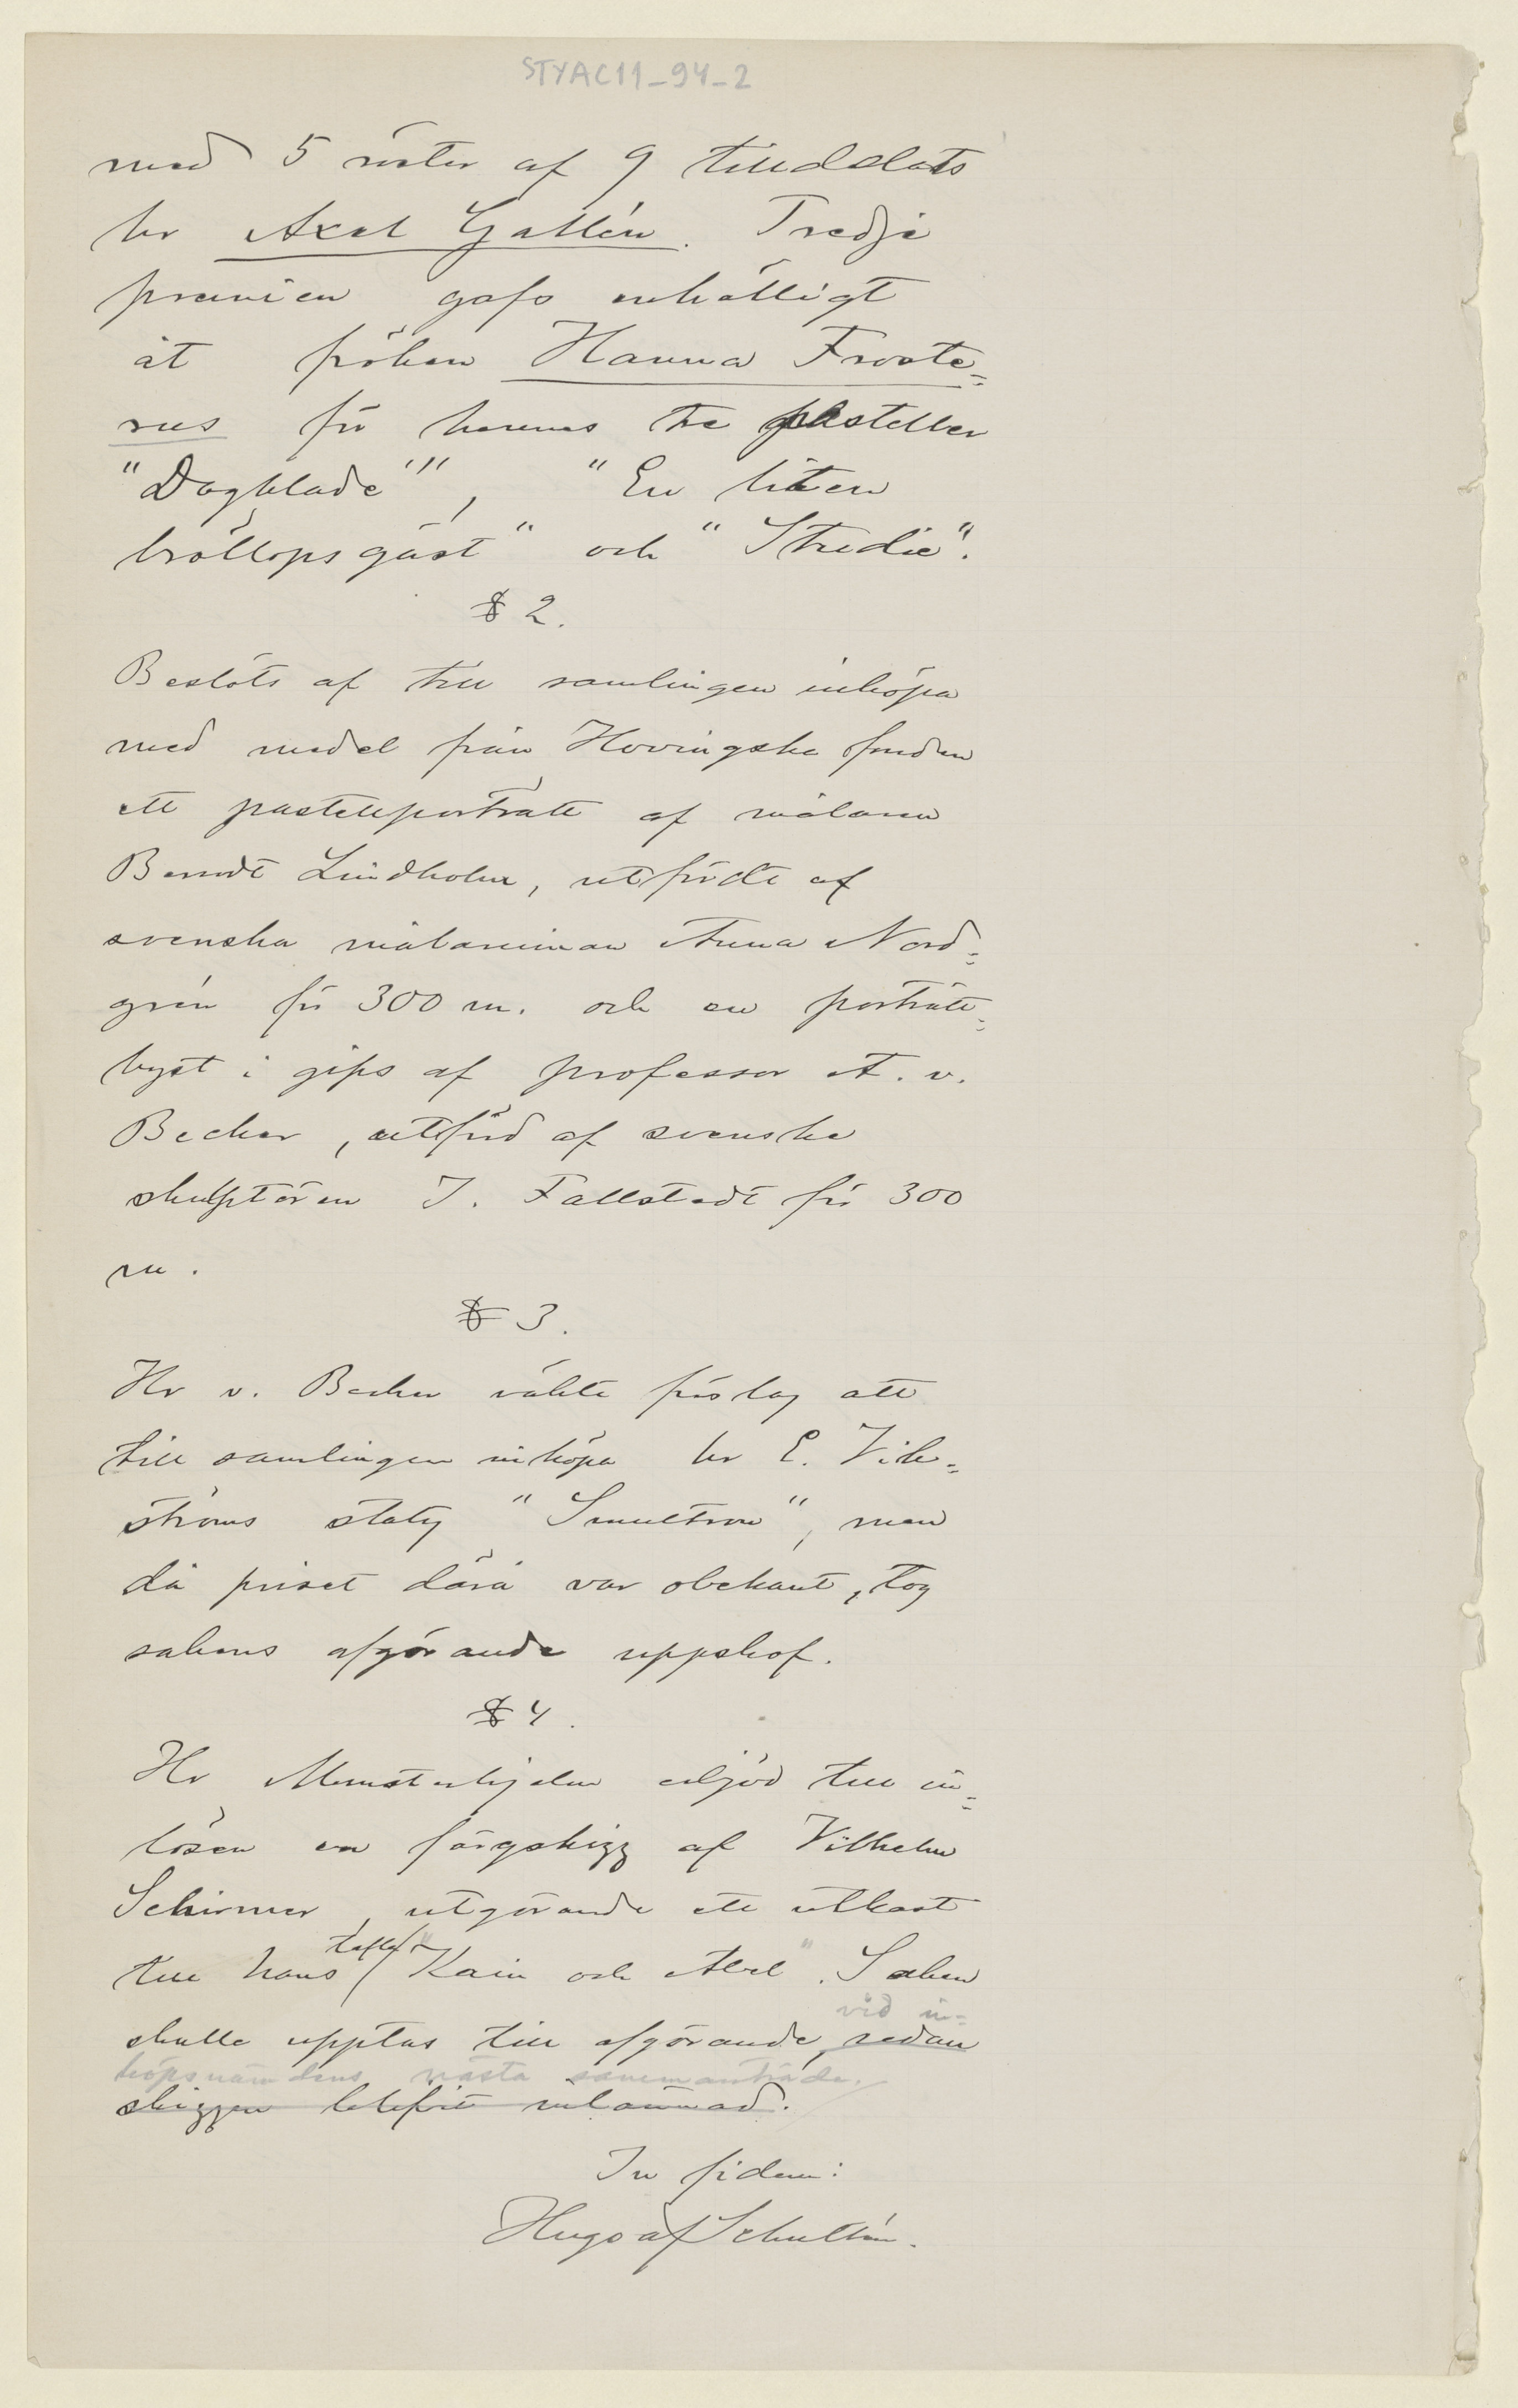 STYAC11_94_2
med 5 röster af 9 tilldelats
hr Axel Gallén. Tredje
premien gafs enhälligt
åt fröken Hanna Froste=
rus för hennes tre pasteller
"Dogklade", "En liten
bröllopsgäst" och "Studie".
§ 2.
Beslöts af till samlingen inköpa
med medel från Hovingska fonden
ett pastellporträtt af målaren
Berndt Lindholm, utfördt af
svenska målarinnan Anna Nord=
grén för 300 m. och en porträtt=
byst i gips af professor A. v.
Becker, utförd af svenske
skulptören I. Fallstedt för 300
m.
§ 3.
Hr v. Becker väkte förslag att
till samlingen inköpa hr E. Vik=
ströms staty "Smultron", men
då priset därå var obekant, tog
sakens afgörande uppskof.
§ 4.
Hr Munsterhjelm erbjöd till in=
lösen en färgskizz af Vilhelm
Schirmer, utgörande ett utkast
till hans taflaf "Kain och Abel". Saken
skulle upptas till afgörande, sedan
vid in=
köpsnämdens nästa sammanträde.
skizzen blifvit inlämnad.
In fidem:
Hugo af Schultén.